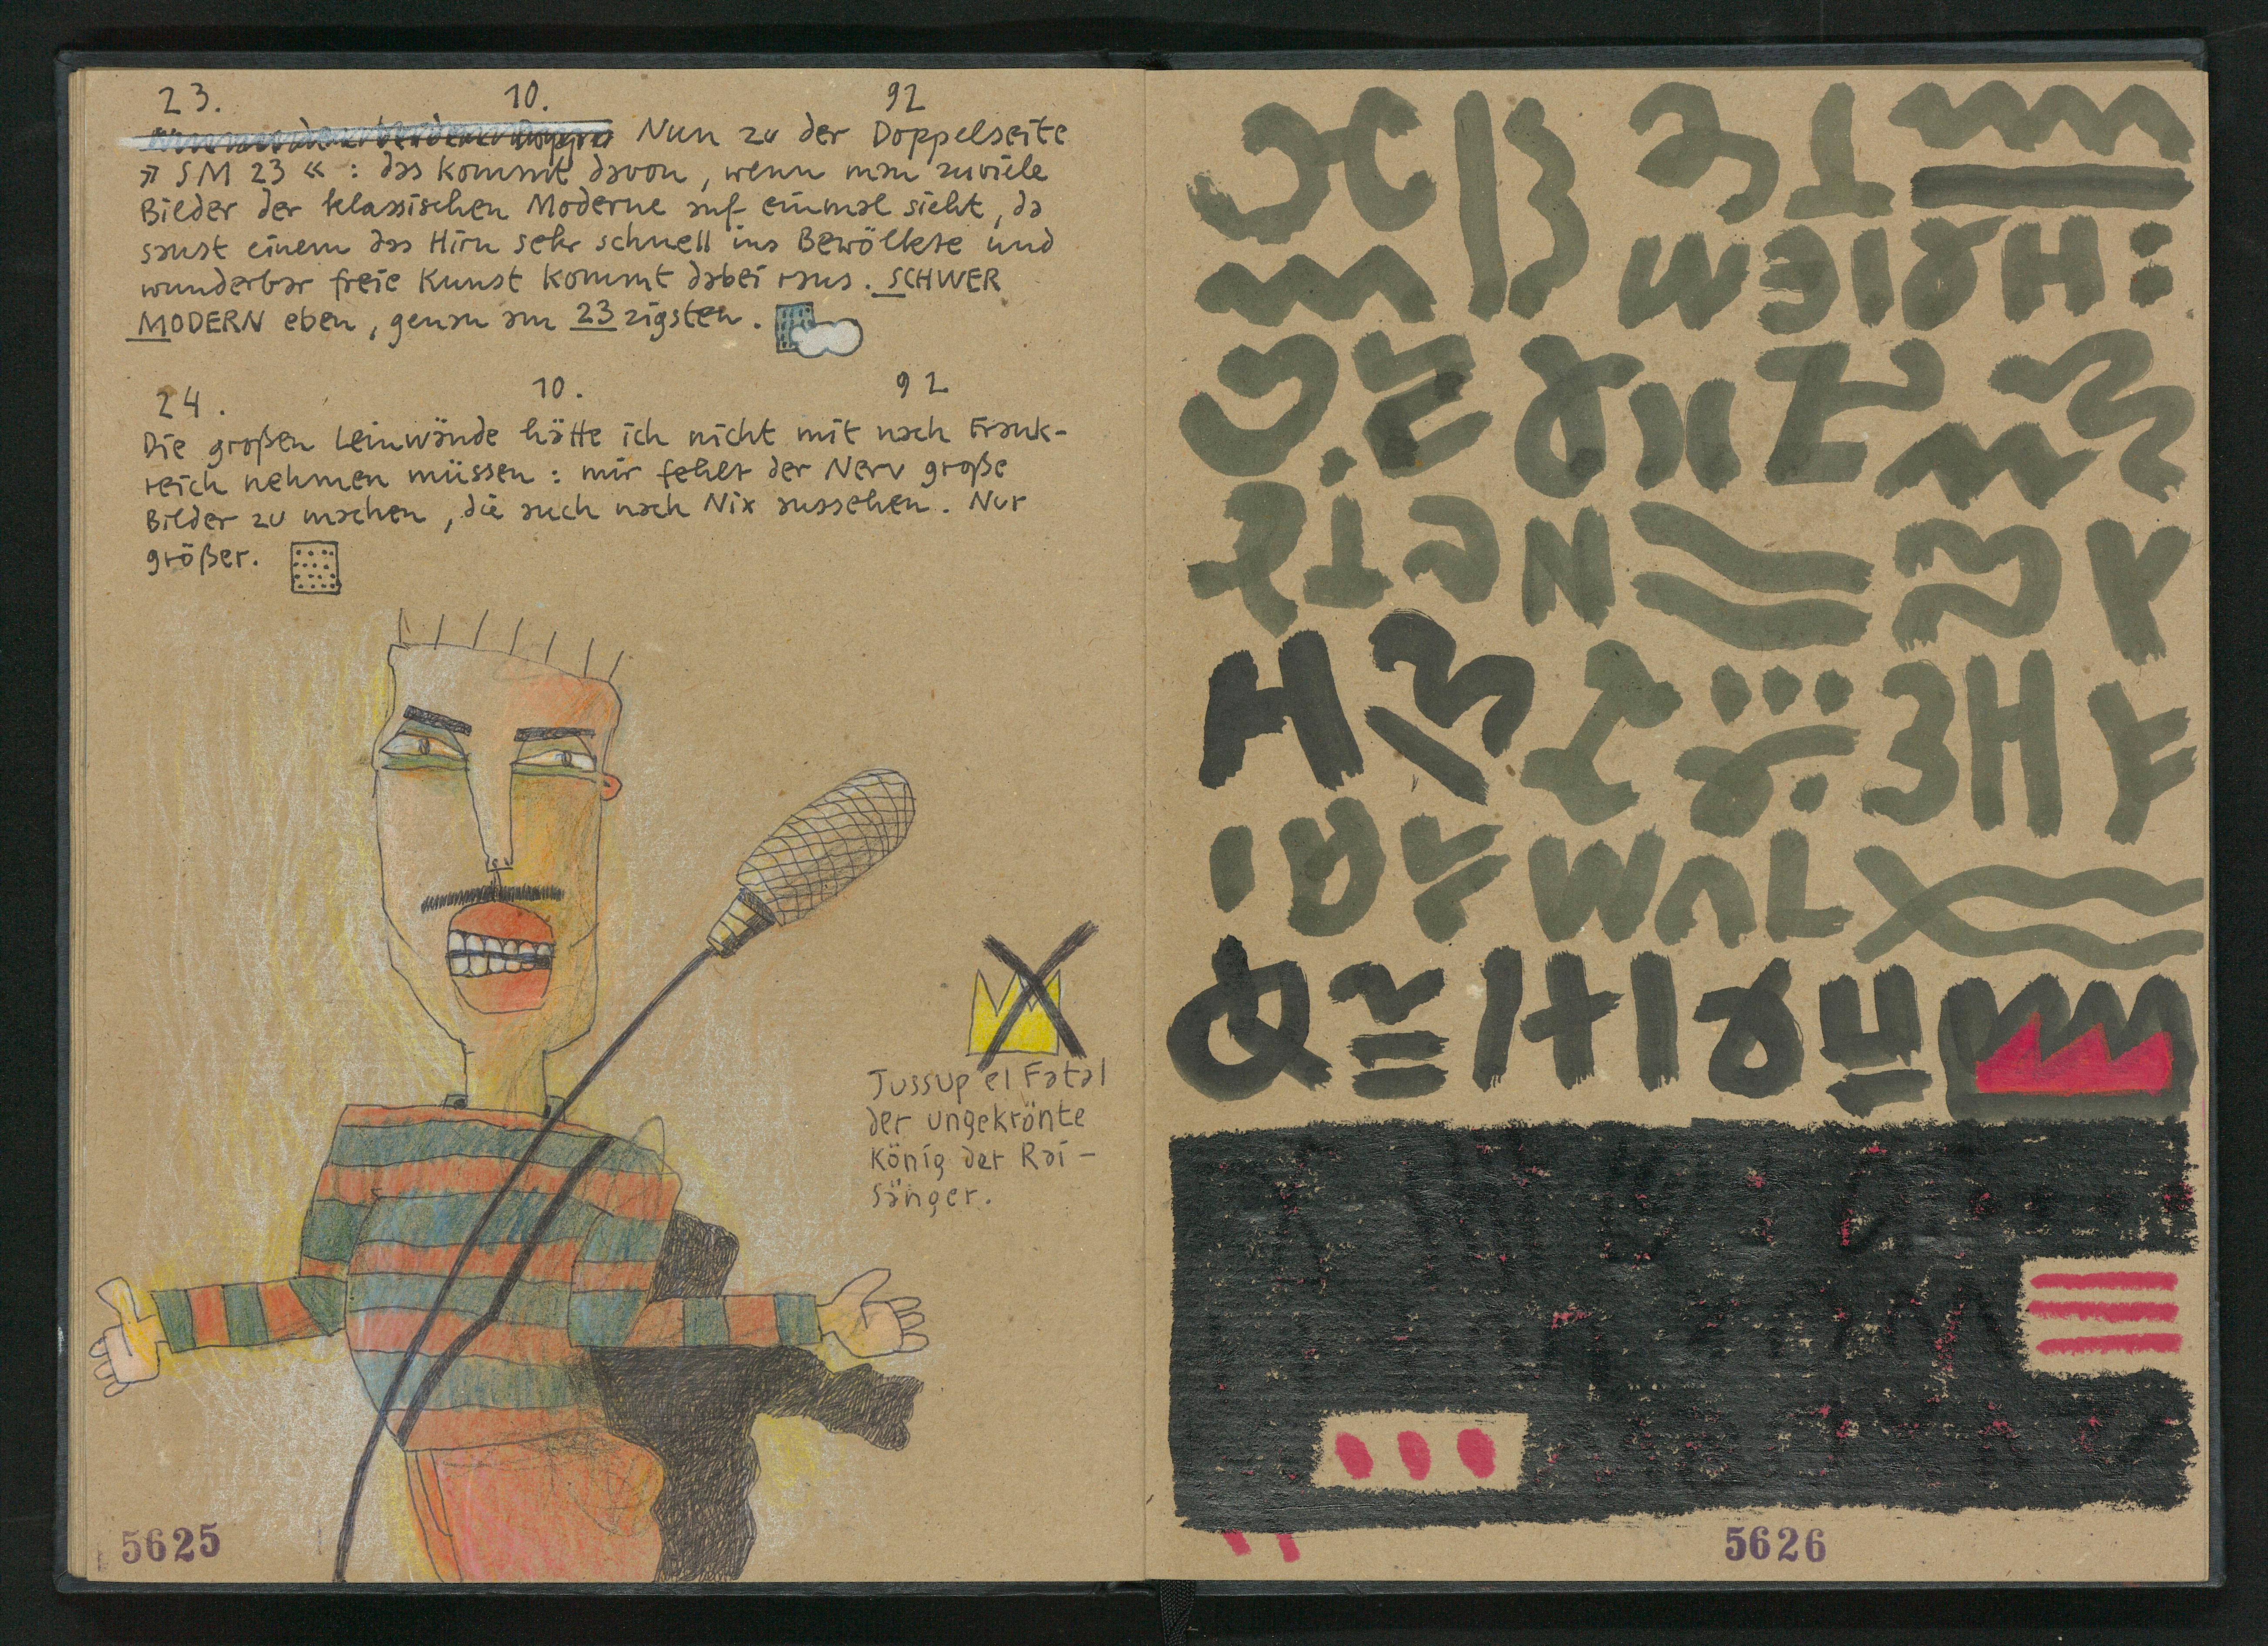 23. 10. 92
Nun zu der Doppelseite
» SM 23 « : das kommt davon, wenn man zuviele
Bilder der klassischen Moderne auf einmal sieht, da
saust einem das Hirn sehr schnell ins Bewölkte und
wunderbar freie Kunst kommt dabei raus. SCHWER
MODERN eben, genau am 23zigsten.
24. 10. 92
Die großen Leinwände hätte ich nicht mit nach Frank-
reich nehmen müssen : mir fehlt der Nerv große
Bilder zu machen, die auch nach Nix aussehen. Nur
größer.
Jussup el Fatal
der ungekrönte
König der Rai-
Sänger.
5625
5626